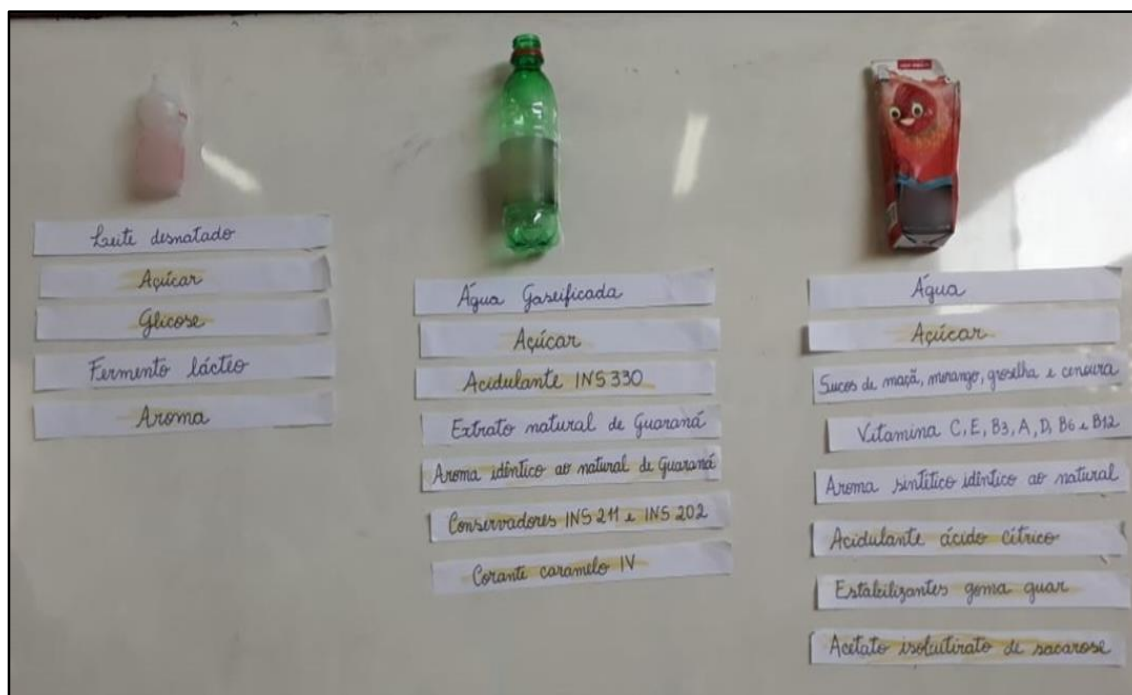 Leite desnatado
Açúcar
Glicose
Fermento lácteo
Aroma
Água Gaseificada
Açúcar
Acidulante INS 330
Extrato natural de Guaraná
Aroma idêntico ao natural de Guaraná
Conservadores INS 211 e INS 202
Corante caramelo IV
Água
Açúcar
Sucos de maçã, morango, groselha e cenoura
Vitamina C, E, B3, A, D, B6 e B12
Aroma sintético idêntico ao natural
Acidulante ácido cítrico
Estabilizantes goma guar
Acetato isobutirato de sacarose